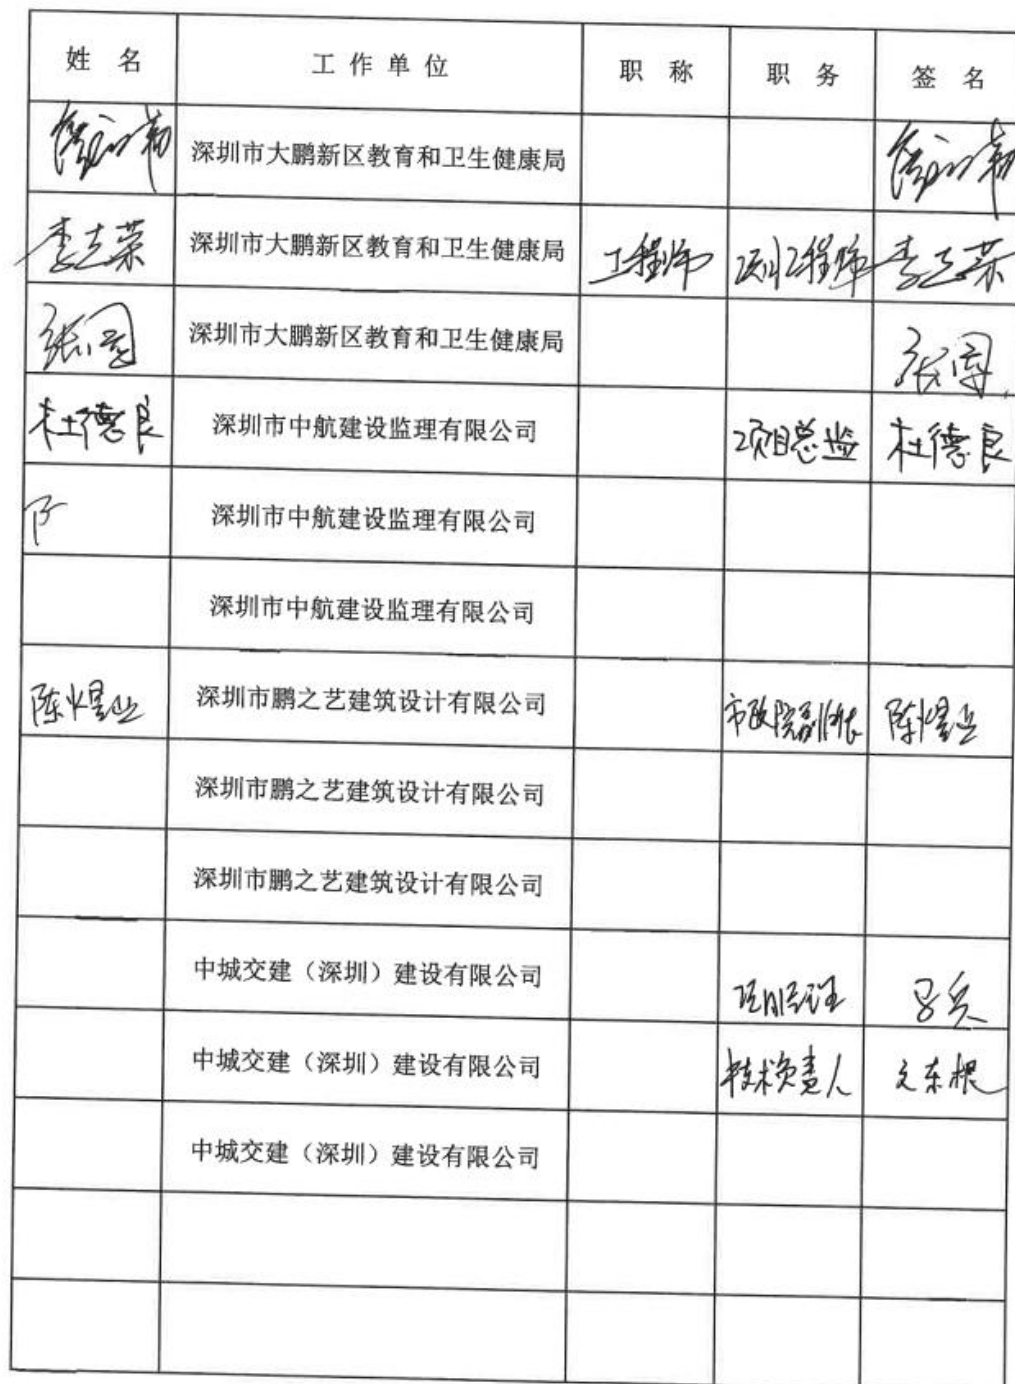 姓 名 工 作 单 位 职 称 职 务 签 名
深圳市大鹏新区教育和卫生健康局
李志荣 深圳市大鹏新区教育和卫生健康局 工程师 项目工程师 李志荣
深圳市大鹏新区教育和卫生健康局
杜德良 深圳市中航建设监理有限公司 项目总监 杜德良
深圳市中航建设监理有限公司
深圳市中航建设监理有限公司
陈煜 深圳市鹏之艺建筑设计有限公司 市政院副院长 陈煜
深圳市鹏之艺建筑设计有限公司
深圳市鹏之艺建筑设计有限公司
中城交建（深圳）建设有限公司 项目经理
中城交建（深圳）建设有限公司 技术负责人 文东根
中城交建（深圳）建设有限公司